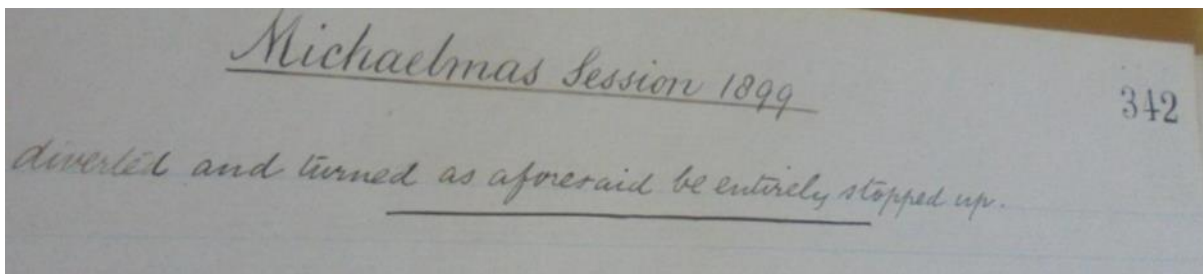 Michaelmas Session 1899
342
diverted and turned as aforesaid be entirely stopped up.